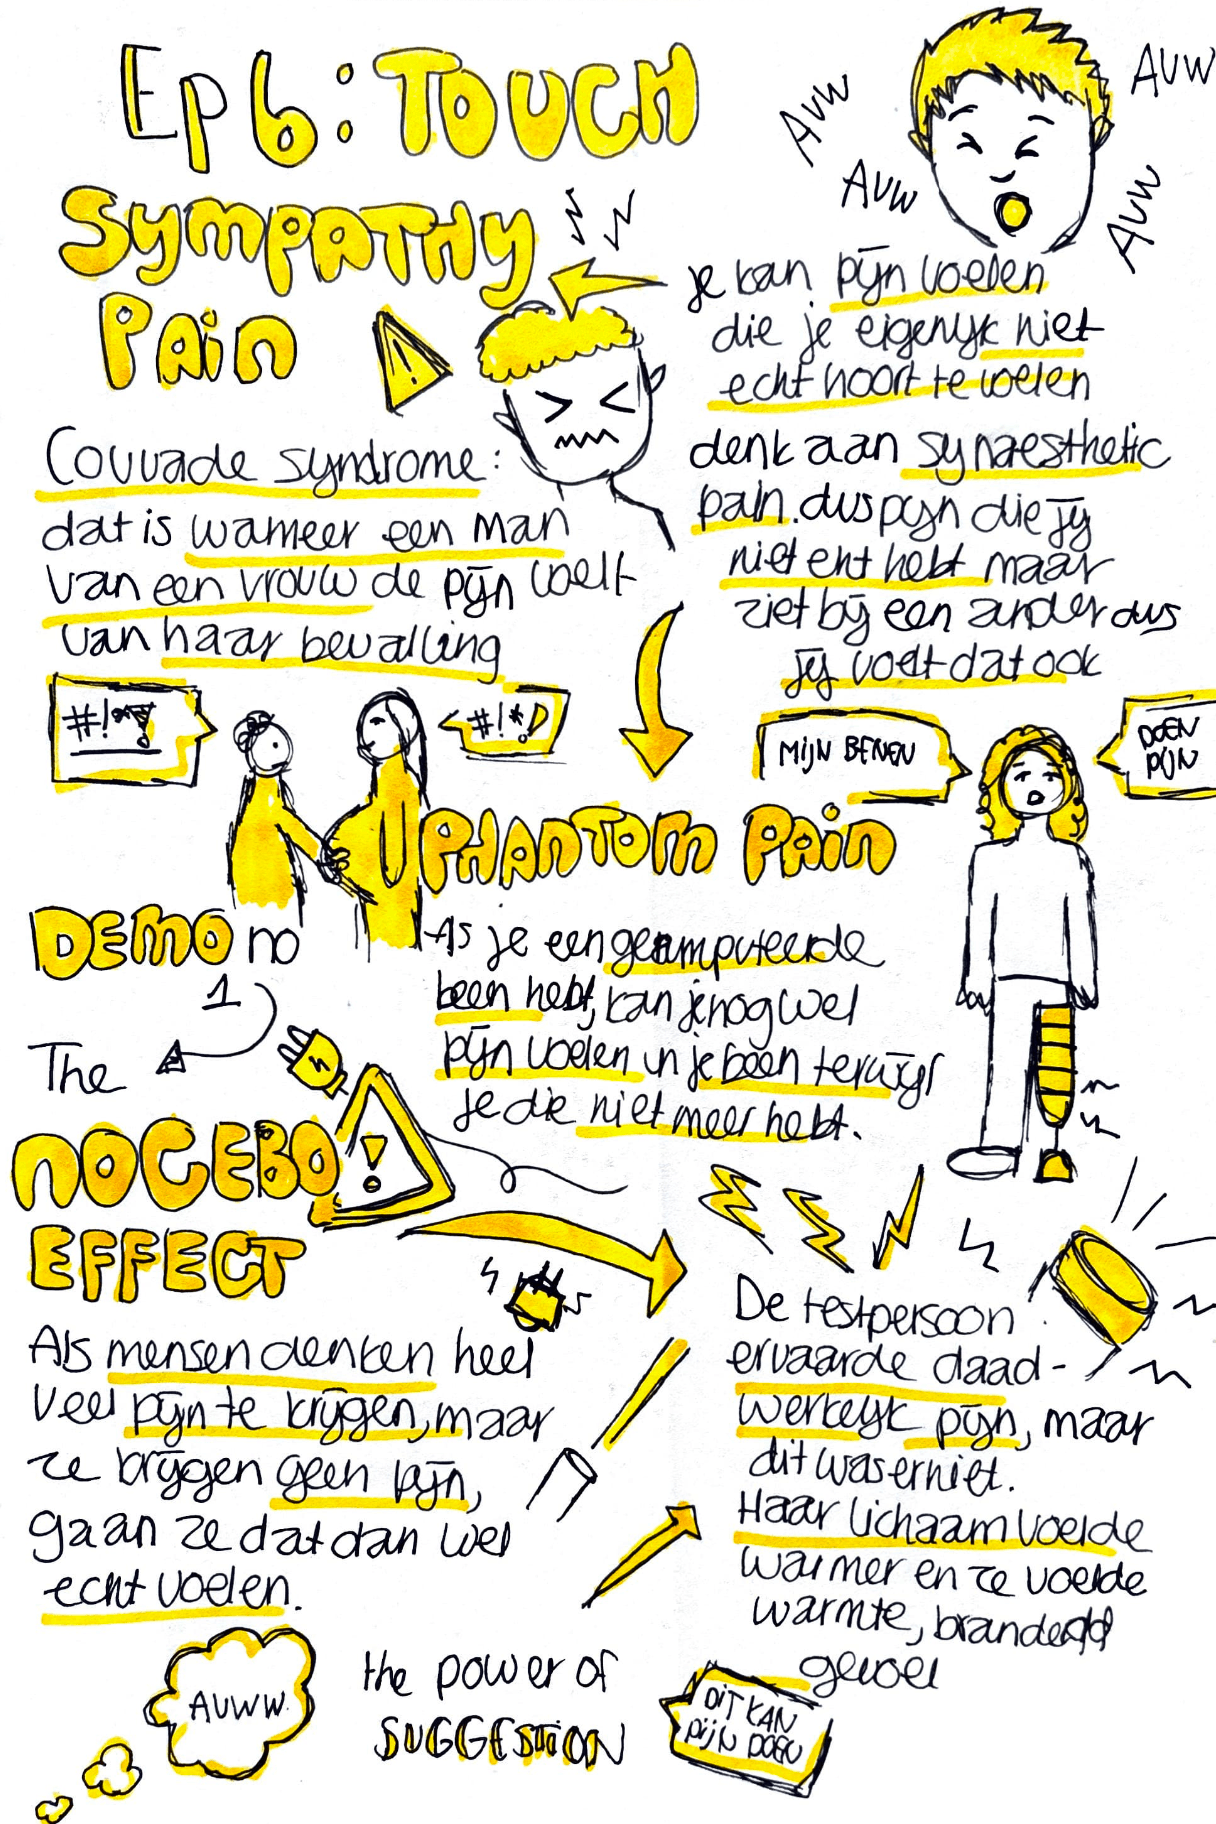 Ep 6: TOUCH
AUW
AUW
AUW
AUW
SYMPATHY
PAIN
!
je kan pijn voelen
die je eigenlijk niet
echt hoort te voelen
denk aan synaesthetic
pain. dus pijn die jij
niet echt hebt maar
ziet bij een ander dus
jij voelt dat ook
Couvade syndrome:
dat is wanneer een man
van een vrouw de pijn voelt
van haar bevalling
#!*?
#!*!
MIJN BENEN
DOEN
PIJN
PHANTOM PAIN
Als je een geamputeerde
been hebt, kan je nog wel
pijn voelen in je been terwijl
je die niet meer hebt.
DEMO no
1
The
NOCEBO
EFFECT
!
Als mensen denken heel
veel pijn te krijgen, maar
ze krijgen geen pijn,
gaan ze dat dan wel
echt voelen.
De testpersoon
ervaarde daad-
werkelijk pijn, maar
dit was er niet.
Haar lichaam voelde
warmer en ze voelde
warmte, brandend
gevoel
AUWW.
the power of
SUGGESTION
DIT KAN
PIJN DOEN